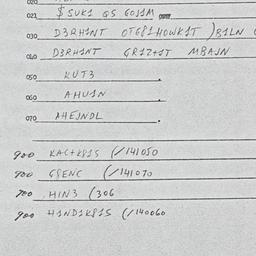 020
021 $ SUK1 QS GOJ1M
030 D3RH1NT OTG81HOWK1T )B1LN
040 D3RH1NT GR1Z+1T MBAJN
050 KUT3
060 AHU1N
070 AHEJNDL
900 KAC+K81S (/141050
900 GSENC (/141070
700 HIN3 (306
900 H1ND1K81S (/140060